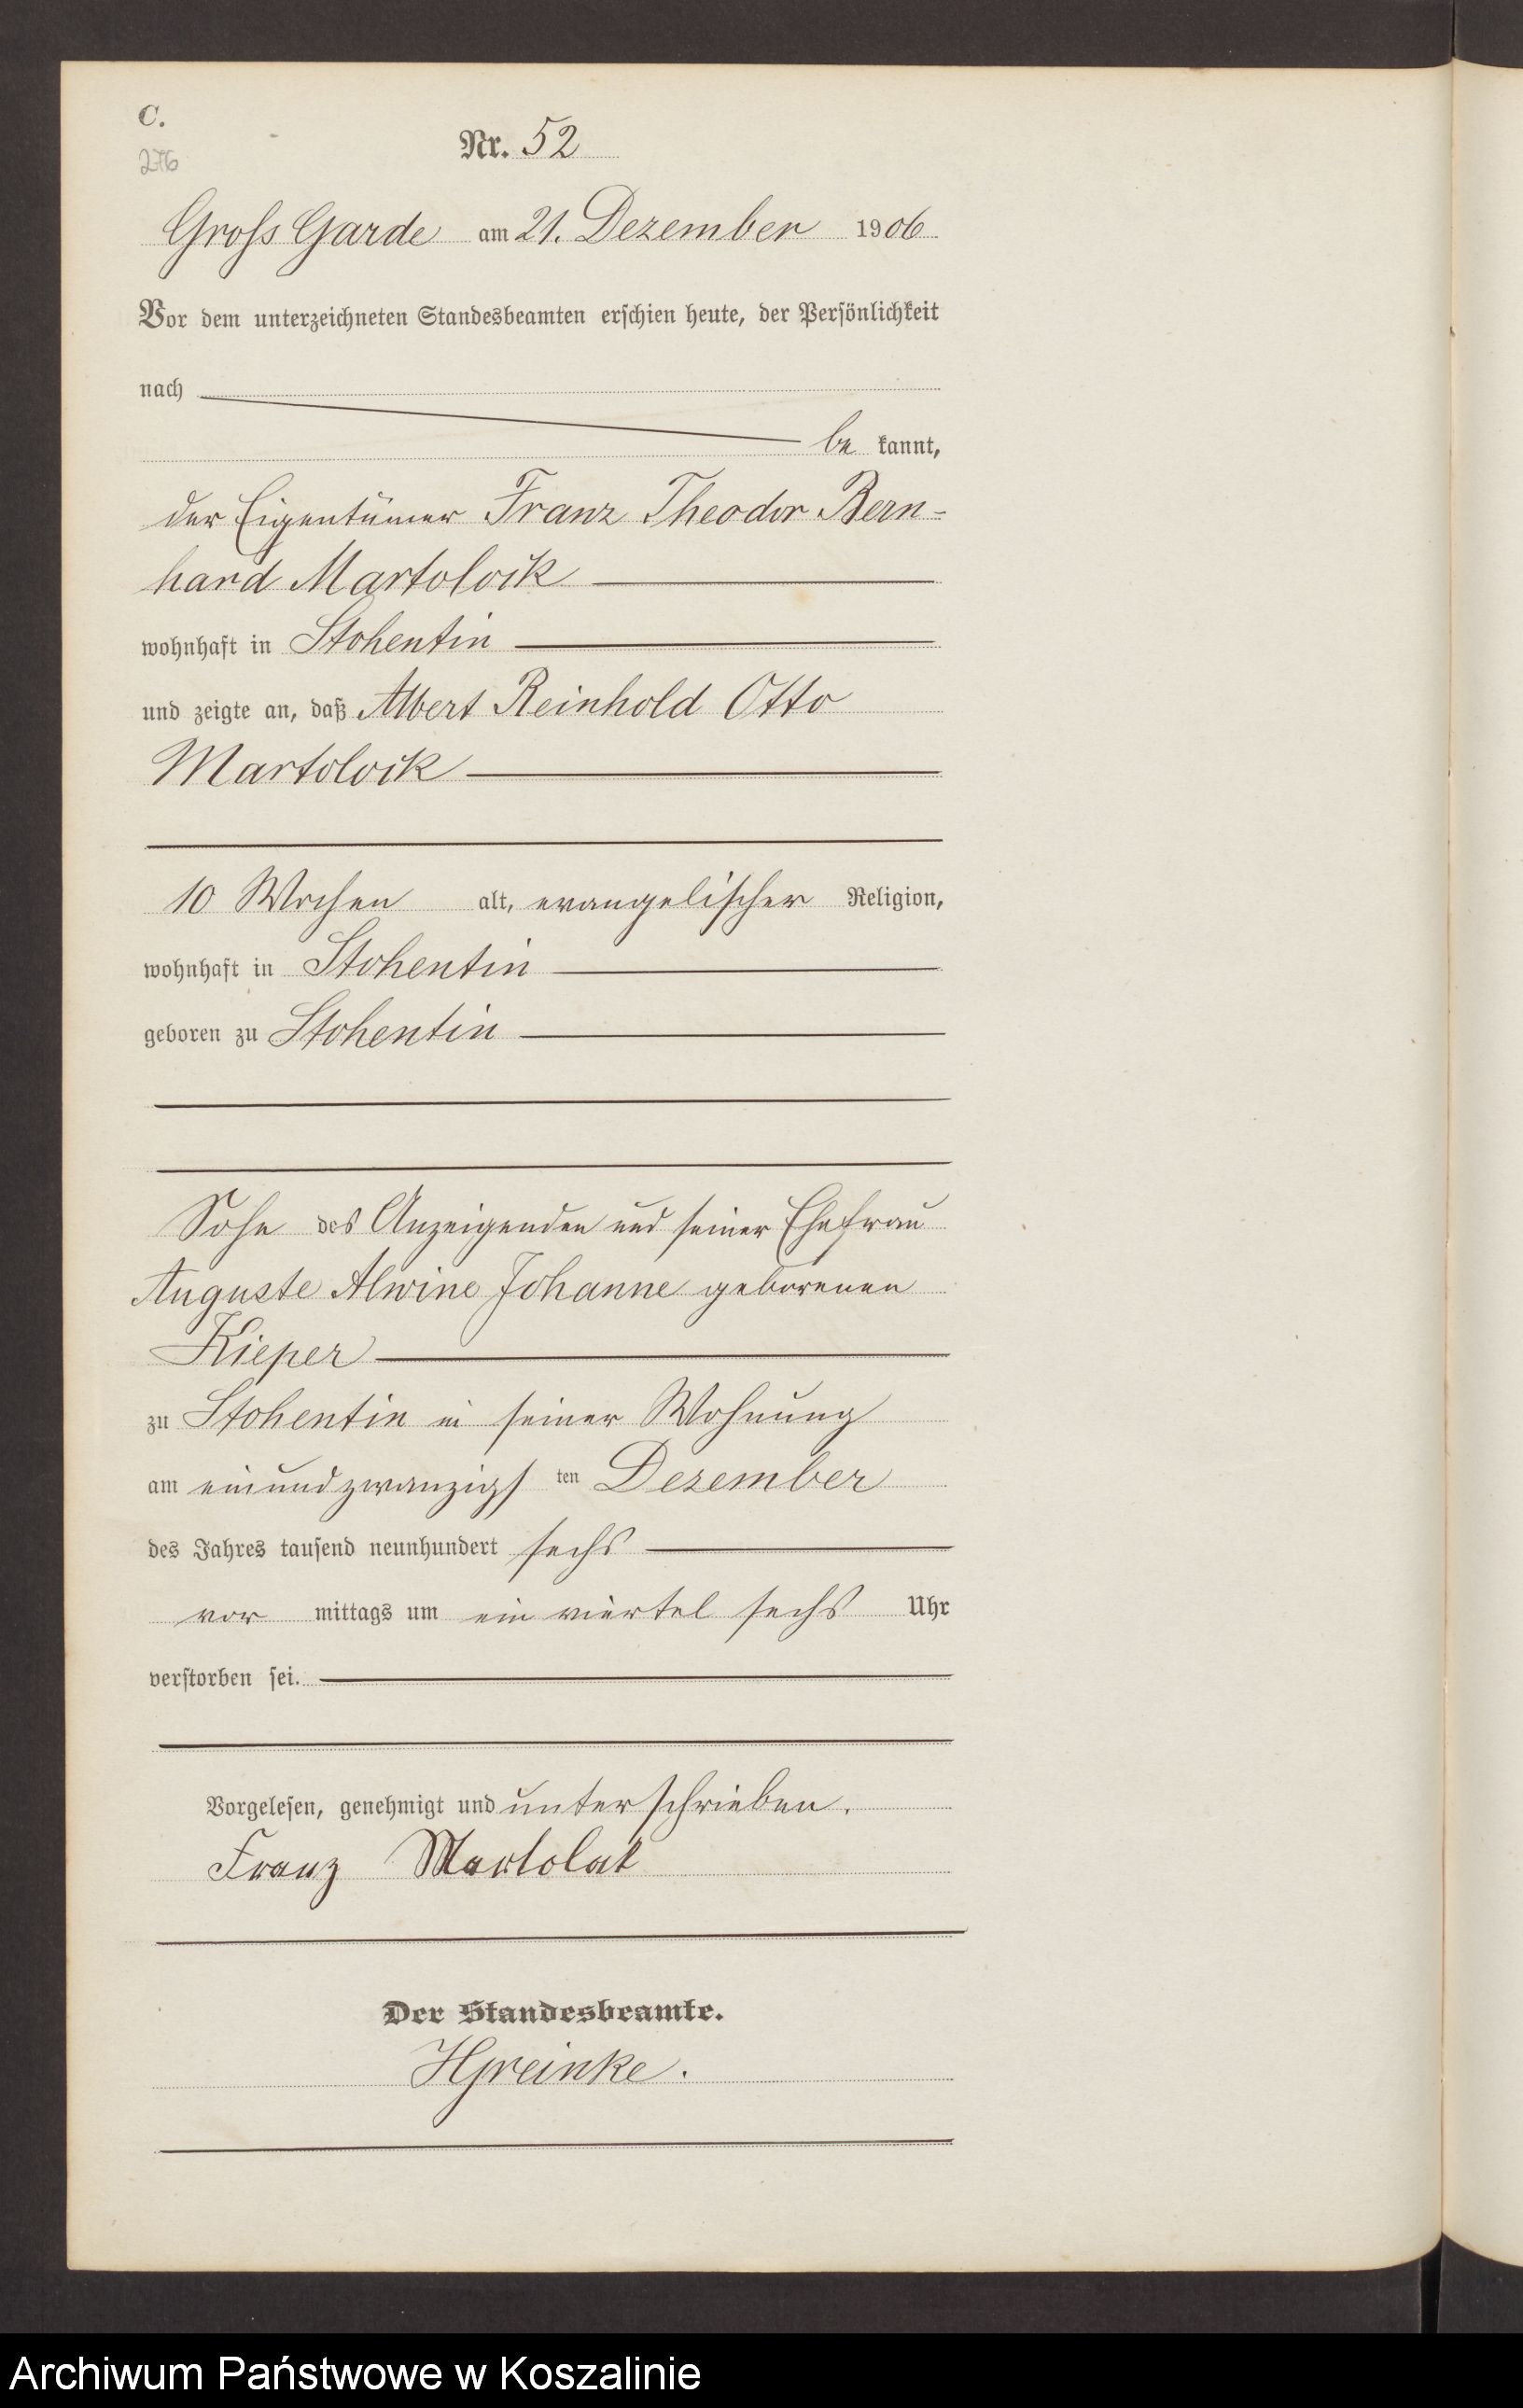 C.
276
Nr. 52
Gross Garde am 21. Dezember 1906
Vor dem unterzeichneten Standesbeamten erschien heute, der Persönlichkeit
nach
be kannt,
der Eigentümer Franz Theodor Bern-
hard Martolock
wohnhaft in Stohentin
und zeigte an, daß Albert Reinhold Otto
Martolock
10 Wochen alt, evangelischer Religion,
wohnhaft in Stohentin
geboren zu Stohentin
Sohn des Anzeigenden und seiner Ehefrau
Auguste Alwine Johanne geborenen
Kieper
zu Stohentin in seiner Wohnung
am einundzwanzigs ten Dezember
des Jahres tausend neunhundert sechs
vor mittags um ein viertel sechs Uhr
verstorben sei.
Vorgelesen, genehmigt und unterschrieben.
Franz Martolak
Der Standesbeamte.
Archiwum Państwowe w Koszalinie